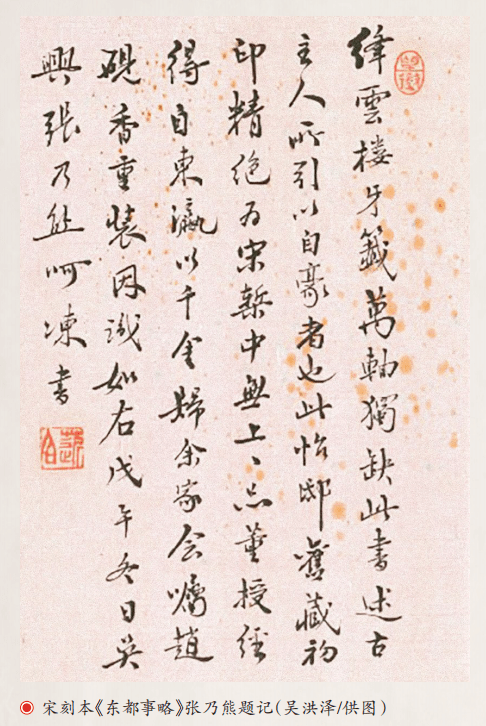 絳雲樓牙籤萬軸獨缺此書述古
主人所引以自豪者也此怡邸舊藏初
印精絕为宋槧中無上〻品董授經
得自東瀛以千金歸余家会囑趙
硯香重裝因識如右戊午冬日吳
興張乃熊呵凍書
宋刻本《东都事略》张乃熊题记(吴洪泽/供图)